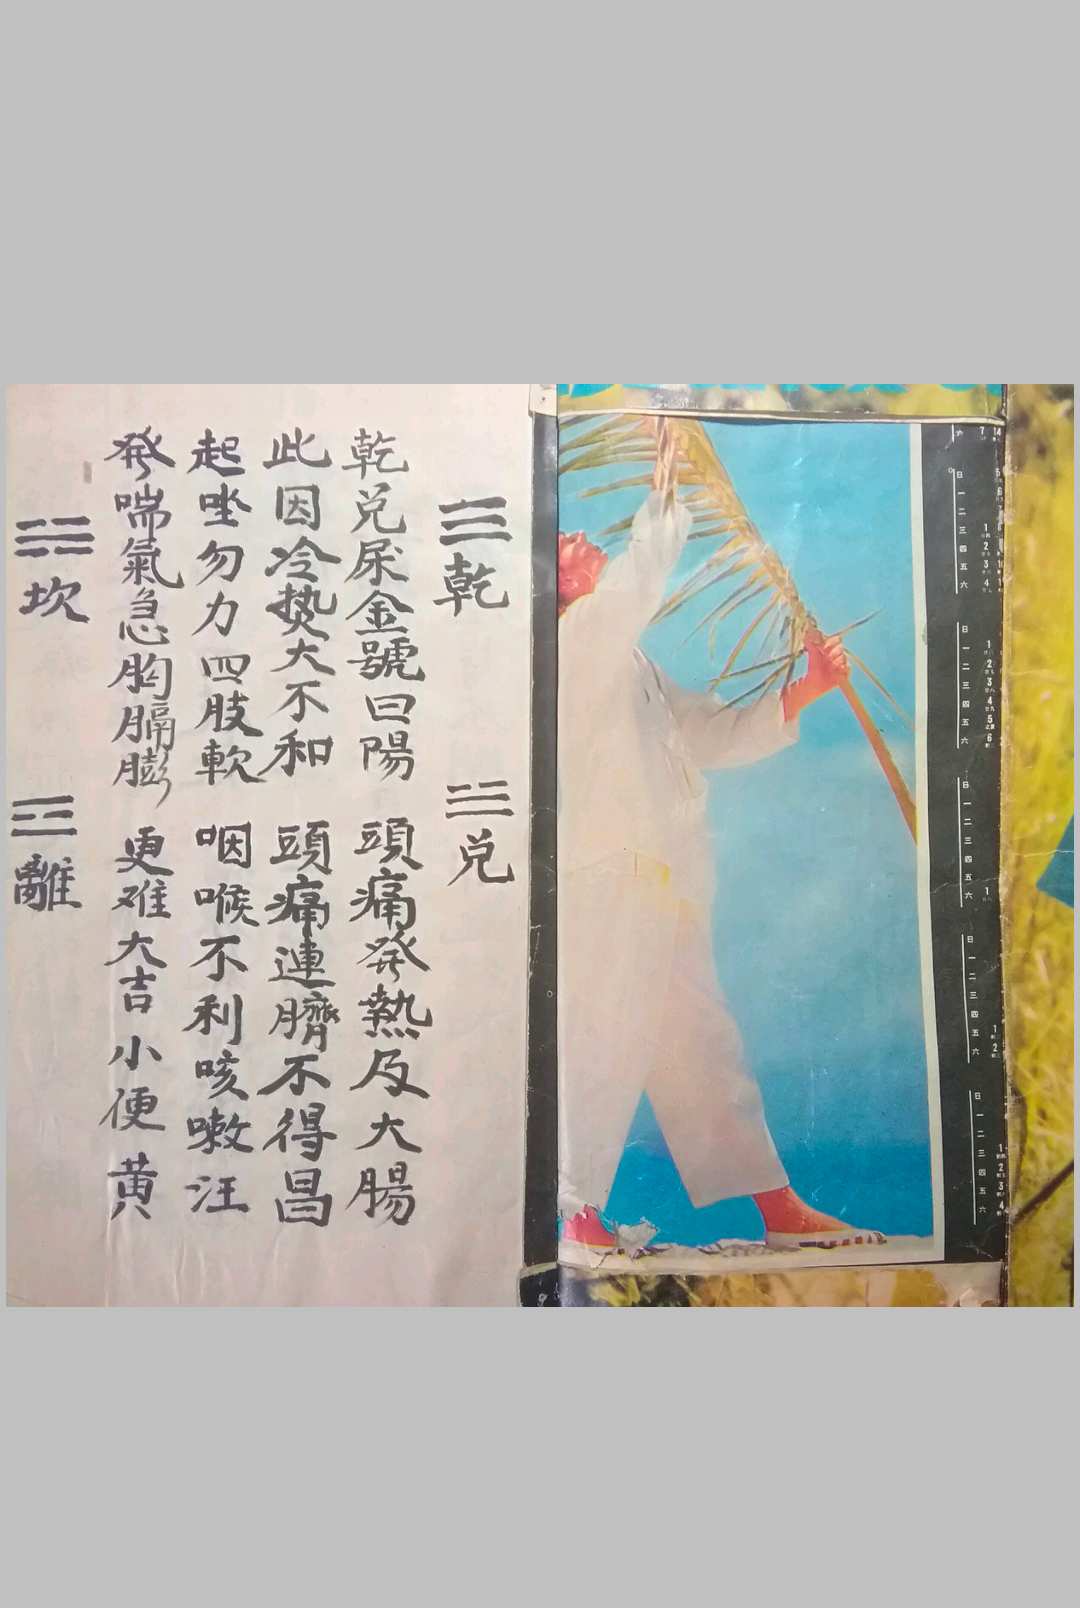 ☰ 乾 ☱ 兑
乾兑尿金號曰陽 頭痛發熱及大腸
此因冷势大不和 頭痛連臍不得昌
起唑勿力四肢軟 咽喉不利咳嗽汪
發喘氣急胸膈膨 更难大吉小便黄
坎 離
日 一 二 三 四 五 六
日 一 二 三 四 五 六
日 一 二 三 四 五 六
日 一 二 三 四 五 六
日 一 二 三 四 五 六